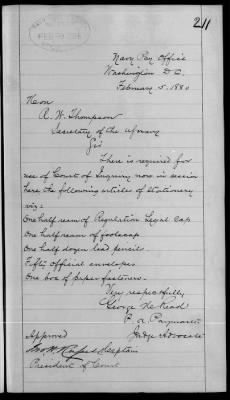 211
Navy Pay Office
Washington D.C.
February 5. 1880
Hon
R. W. Thompson
Secretary of the Navy
Sir
There is required for
use of Court of Inquiry now in session
here the following articles of stationery
viz:
One half ream of Regulation Legal Cap
One half ream of foolscap
One half dozen lead pencils
Fifty official envelopes
One box of paper fasteners.
Very respectfully
George H. Read
P. A. Paymaster
Judge Advocate
Approved
Captain
President of Court